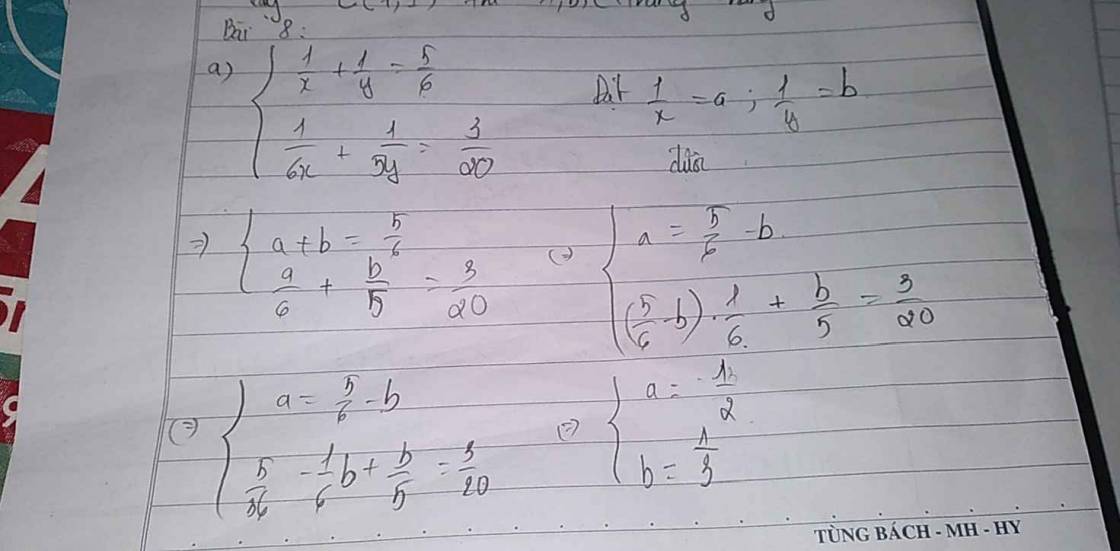 Bài 8:
a) { 1/x + 1/y = 5/6
Đặt 1/x = a ; 1/y = b
1/6x + 1/5y = 3/20
=> { a + b = 5/6
a/6 + b/5 = 3/20
(=) { a = 5/6 - b
(5/6 - b) . 1/6 + b/5 = 3/20
(=) { a = 5/6 - b
5/36 - 1/6 b + b/5 = 3/20
(=) { a = /2
b = 1/3
TÙNG BÁCH - MH - HY